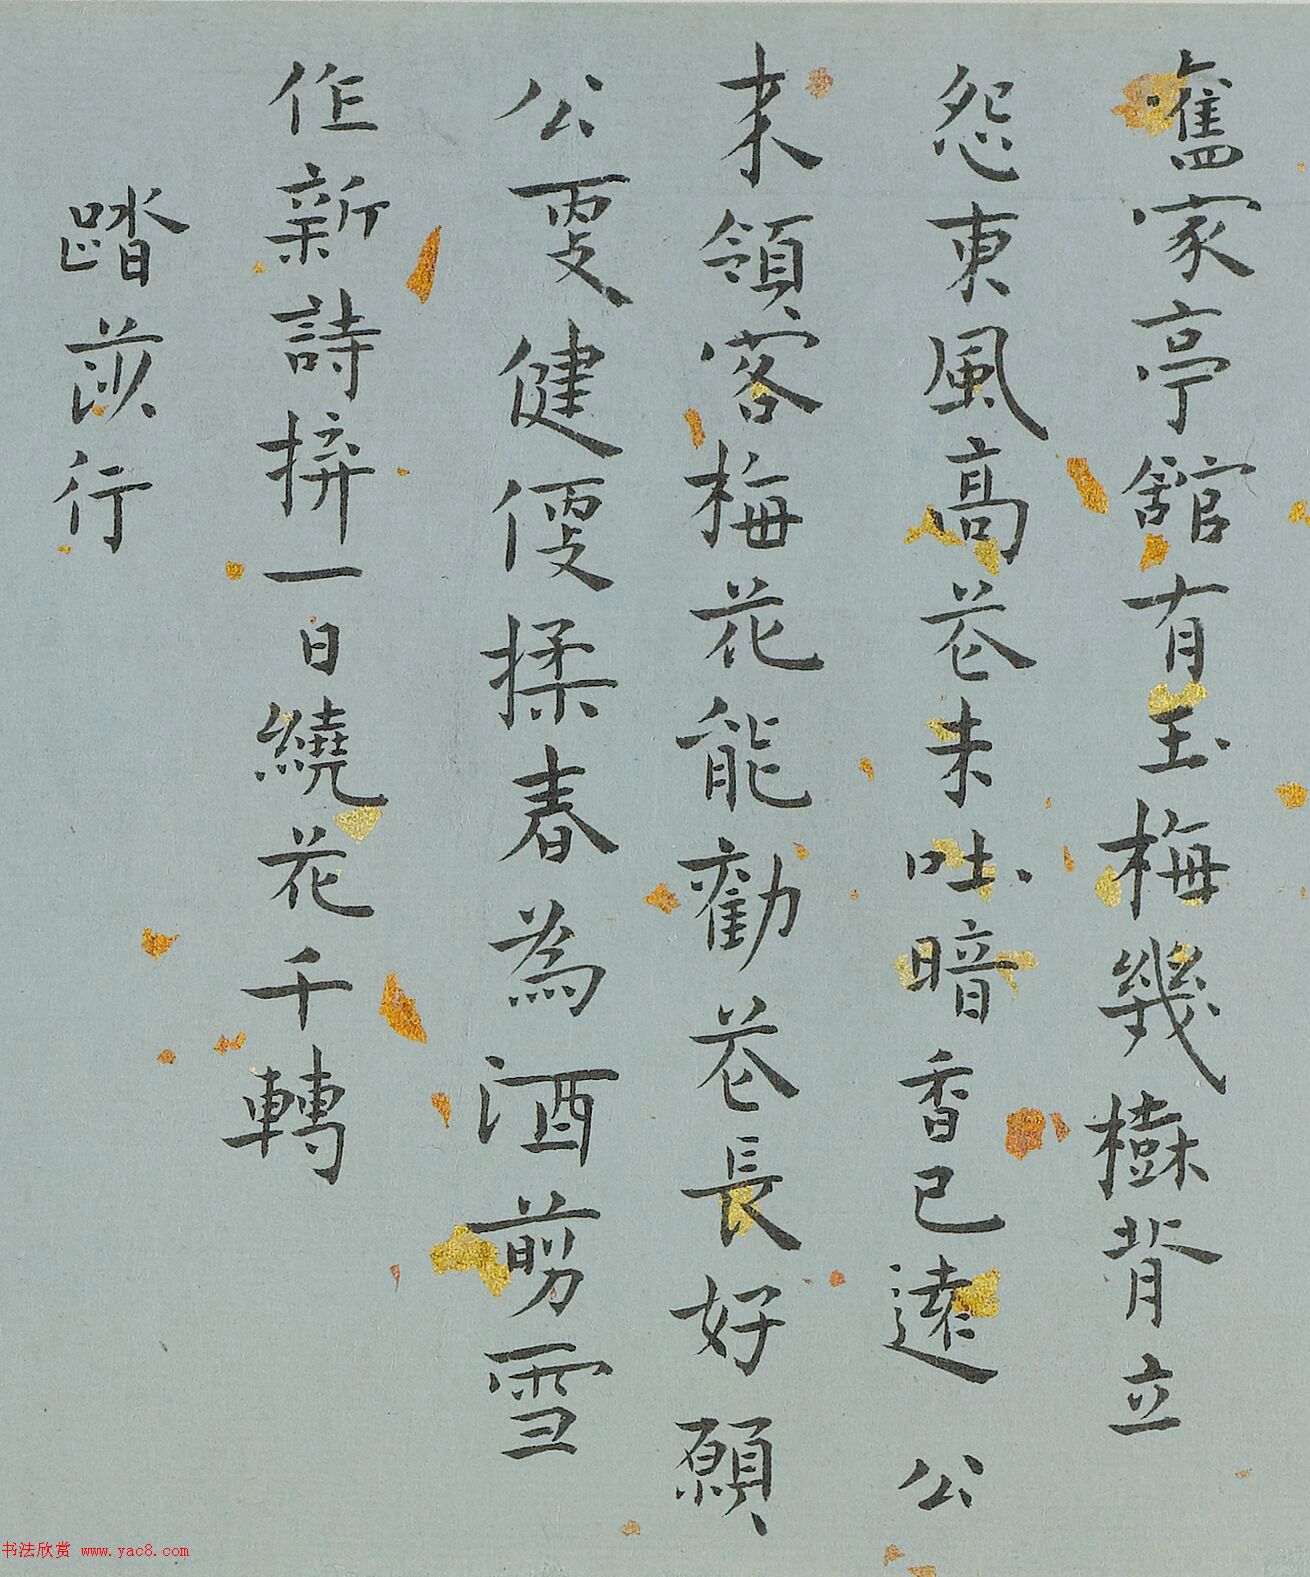 舊家亭館有玉梅幾樹背立
怨東風高花未吐暗香已遠公
来領客梅花能勸花長好願
公更健便揉春為酒剪雪
作新詩拚一日繞花千轉
踏莎行
书法欣赏 www.yac8.com